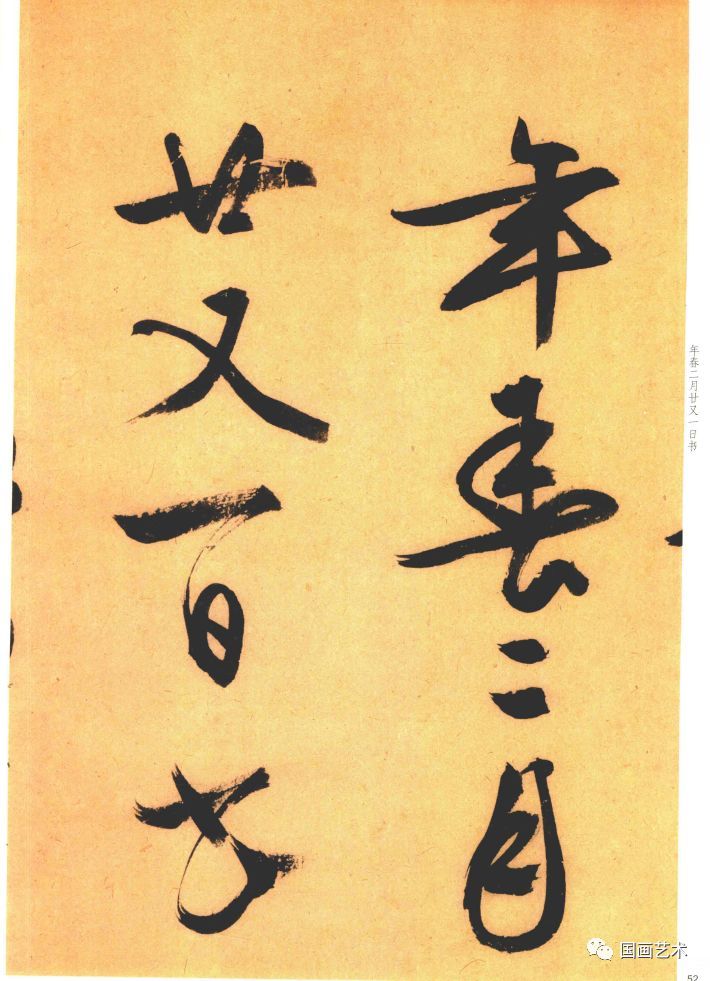 年春二月
廿又一日书
年春二月廿又一日书
国画艺术
52